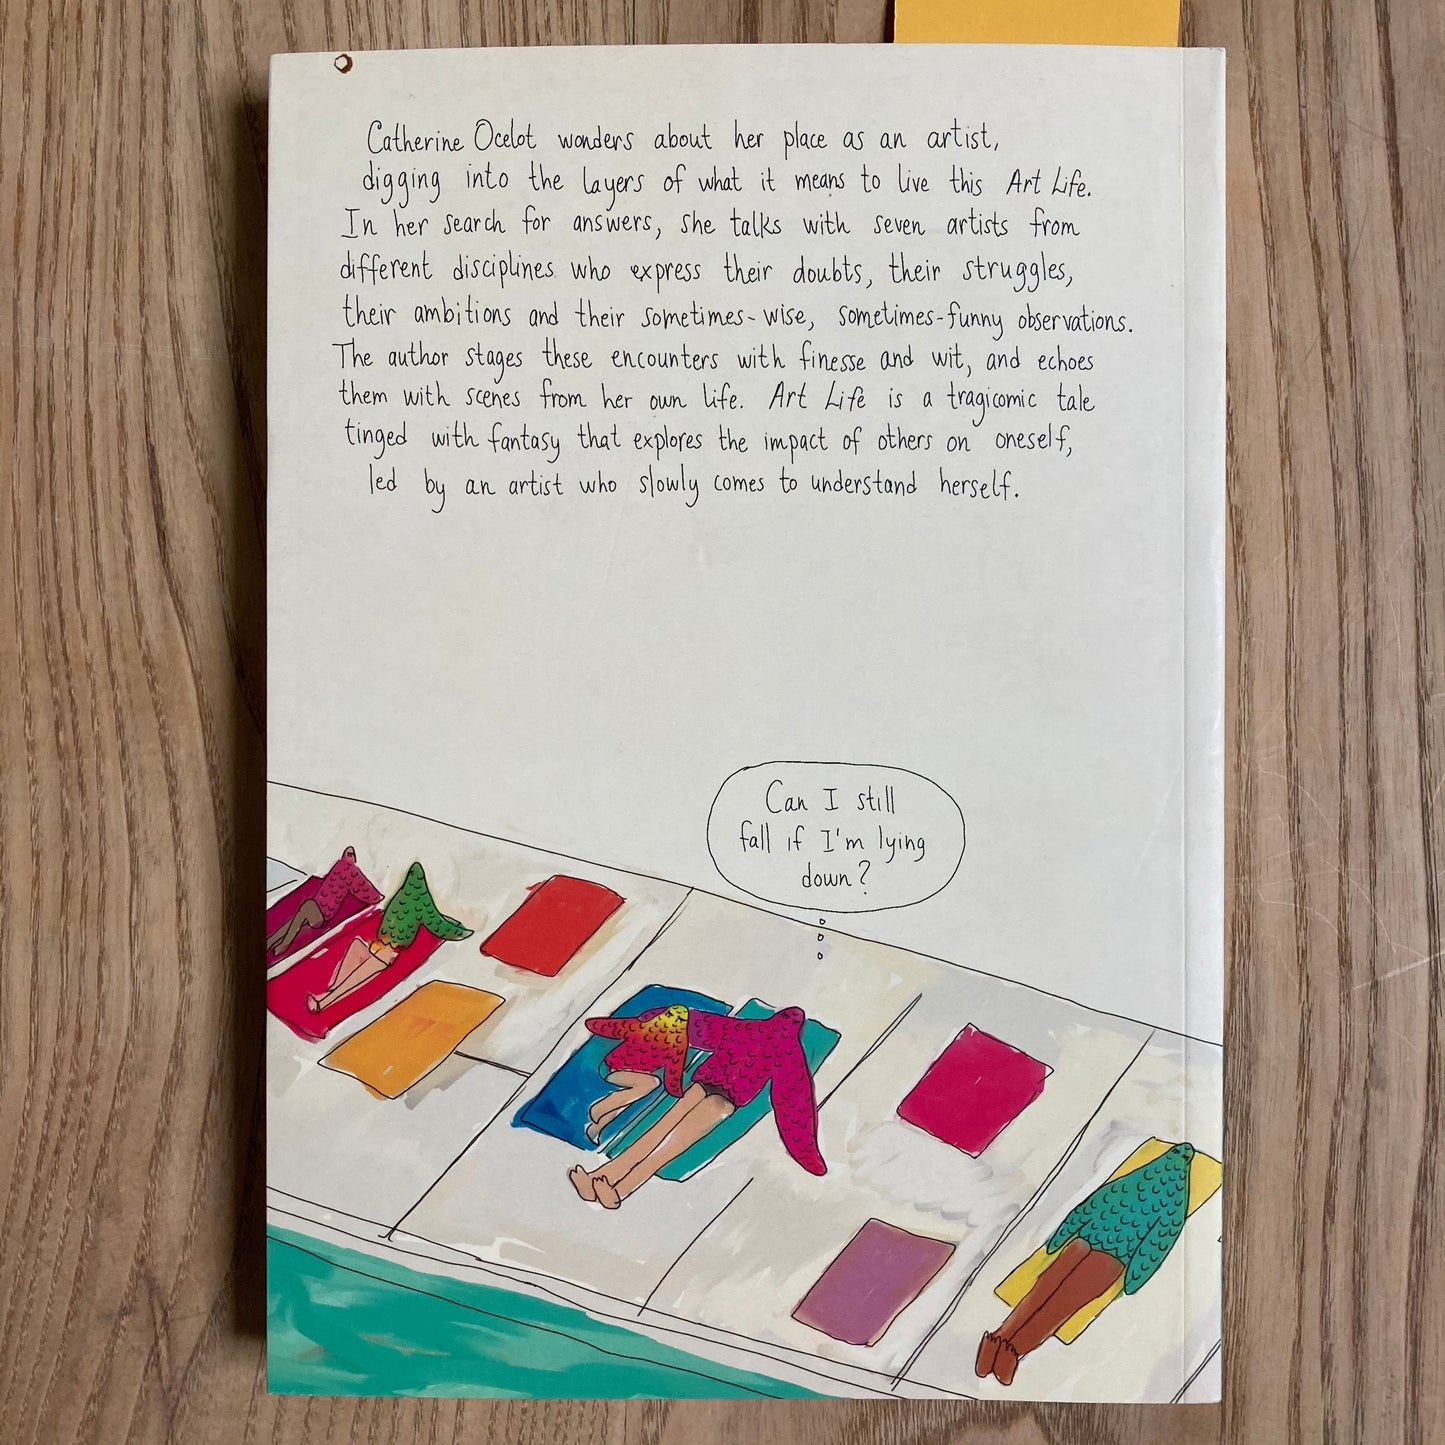 Catherine Ocelot wonders about her place as an artist,
digging into the layers of what it means to live this Art Life.
In her search for answers, she talks with seven artists from
different disciplines who express their doubts, their struggles,
their ambitions and their sometimes-wise, sometimes-funny observations.
The author stages these encounters with finesse and wit, and echoes
them with scenes from her own life. Art Life is a tragicomic tale
tinged with fantasy that explores the impact of others on oneself,
led by an artist who slowly comes to understand herself.
Can I still
fall if I'm lying
down?